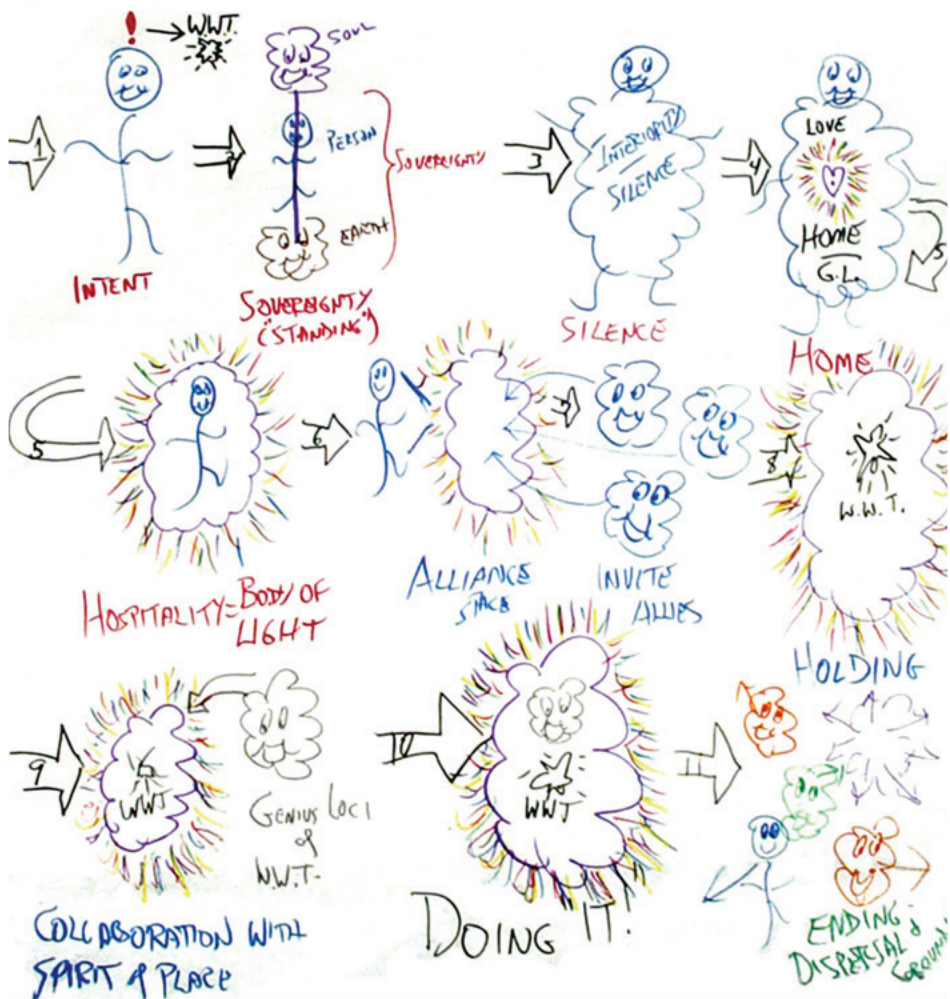 ! → W.W.T.
SOUL
1
2
PERSON
SOVEREIGNTY
EARTH
INTENT
SOVEREIGNTY
("STANDING")
3
INTERIORITY
SILENCE
SILENCE
4
LOVE
HOME
G.L.
5
HOME
5
HOSPITALITY = BODY OF
LIGHT
6
7
ALLIANCE
SPACE
INVITE
ALLIES
8
W.W.T.
HOLDING
9
WWT
GENIUS LOCI
of
W.W.T.
COLLABORATION WITH
SPIRIT of PLACE
10
WWT
DOING IT!
11
ENDING &
DISPERSAL
(GROUND)